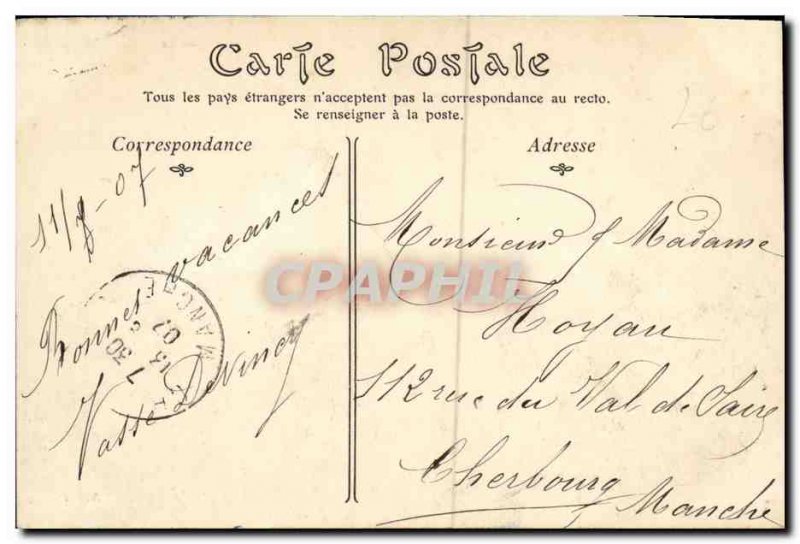 Carte Postale
Tous les pays étrangers n'acceptent pas la correspondance au recto.
Se renseigner à la poste.
Correspondance
Adresse
11/8-07
Bonnes vacances
Vasse Devincy
MANCHE
7 30
13
8
07
Monsieur & Madame
Hoyau
112 rue du Val de Saire
Cherbourg
Manche
CPAPHIL